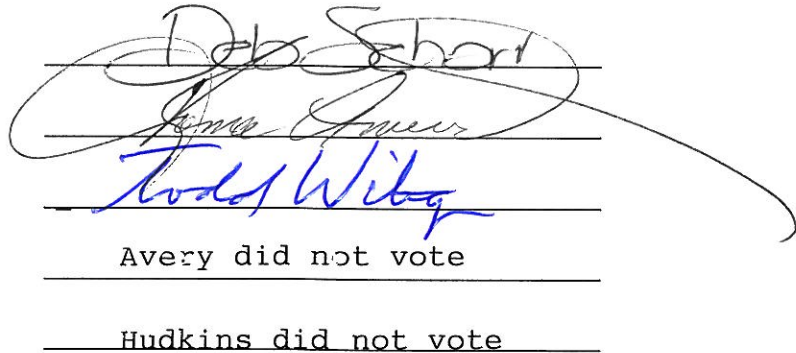 Deb Schorr
Todd Wiltgen
Avery did not vote
Hudkins did not vote